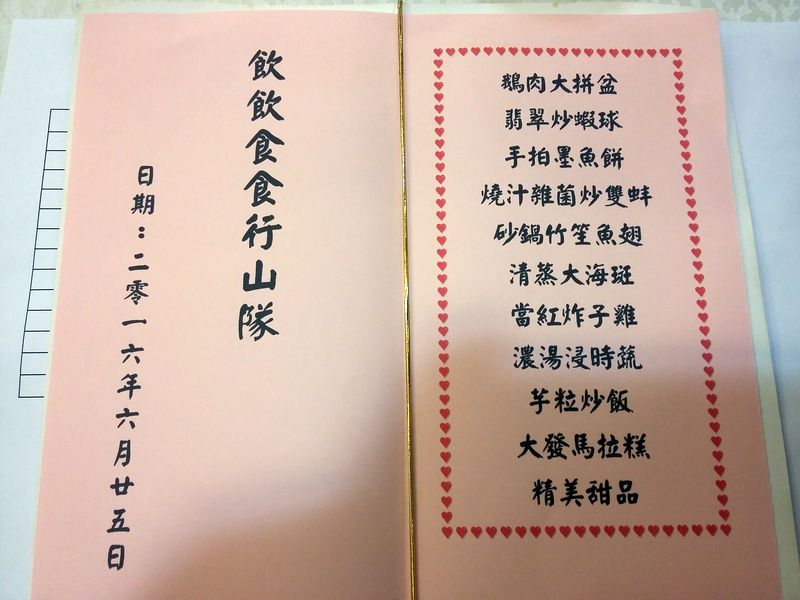 飲飲食食行山隊
日期：二零一六年六月廿五日
鵝肉大拼盆
翡翠炒蝦球
手拍墨魚餅
燒汁雜菌炒雙蚌
砂鍋竹笙魚翅
清蒸大海斑
當紅炸子雞
濃湯浸時蔬
芋粒炒飯
大發馬拉糕
精美甜品